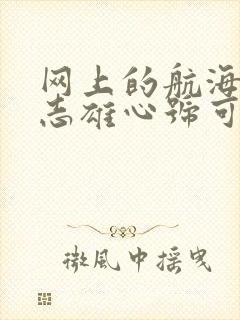 网上的航海
志雄心號可
微風中摇曳